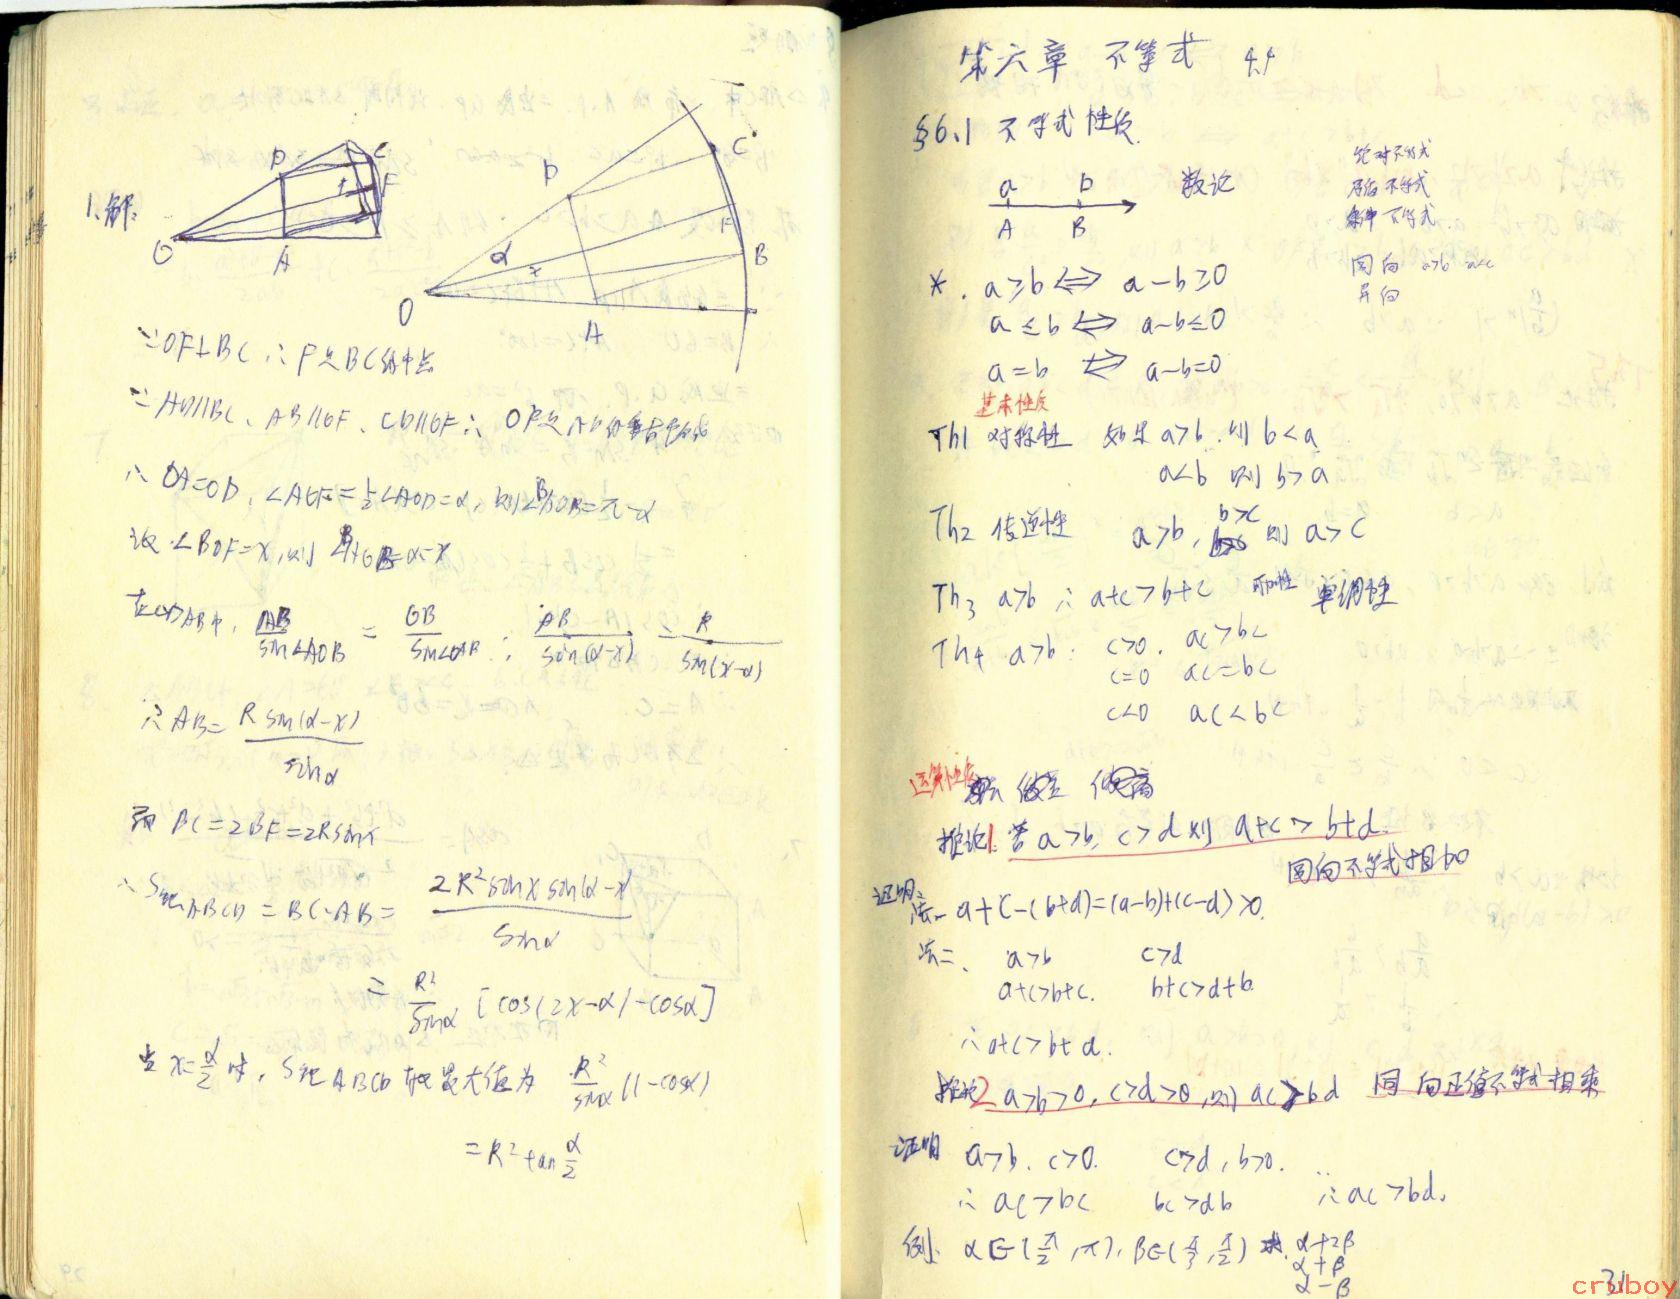 1.解:
O
D
C
F
A
x
D
C
F
B
α
x
O
A
∵OF⊥BC ∴F是BC的中点
∵AD∥BC、AB∥OF、CD∥OF∴ OF是AD的垂直平分线
∴ OA=OD, ∠AOF=½∠AOD=α, 则∠BAO=π-α
设∠BOF=x,则 ∠AOB=α-x
在△OAB中, AB/sin∠AOB = OB/sin∠OAB ∴ AB/sin(α-x) = R/sin(π-α)
∴AB= R sin(α-x)/sinα
而 BC=2BF=2Rsinx
∴S矩ABCD = BC·AB= 2R²sinx sin(α-x)/sinα
= R²/sinα [cos(2x-α)-cosα]
当x=α/2时, S矩ABCD 有最大值为 R²/sinα (1-cosα)
=R²tan α/2
第六章 不等式 4.4
§6.1 不等式性质
绝对不等式
矛盾不等式
条件不等式
a b 数论
A B
同向 a>b a<c
异向
*. a≥b ⟺ a-b≥0
a≤b ⟺ a-b≤0
a=b ⟺ a-b=0
基本性质
Th1 对称性 如果a>b.则b<a
a<b 则b>a
Th2 传递性 a>b, b>c 则 a>c
Th3 a>b ∴ a+c>b+c 可加性 单调性
Th4 a>b: c>0. ac>bc
c=0 ac=bc
c<0 ac<bc
运算性质
推论1. 若a>b, c>d则 a+c>b+d.
同向不等式相加
证明:
法一 a+c-(b+d)=(a-b)+(c-d)>0.
法二、 a>b c>d
a+c>b+c. b+c>d+b
∴a+c>b+d.
推论2 a>b>0, c>d>0,则 ac>bd 同向正值不等式相乘
证明 a>b. c>0. c>d, b>0.
∴ ac>bc bc>db ∴ac>bd.
例. α∈(π/2,π), β∈(π/3,π/2) 求. α+2β
α+β
α-β
31
cruboy